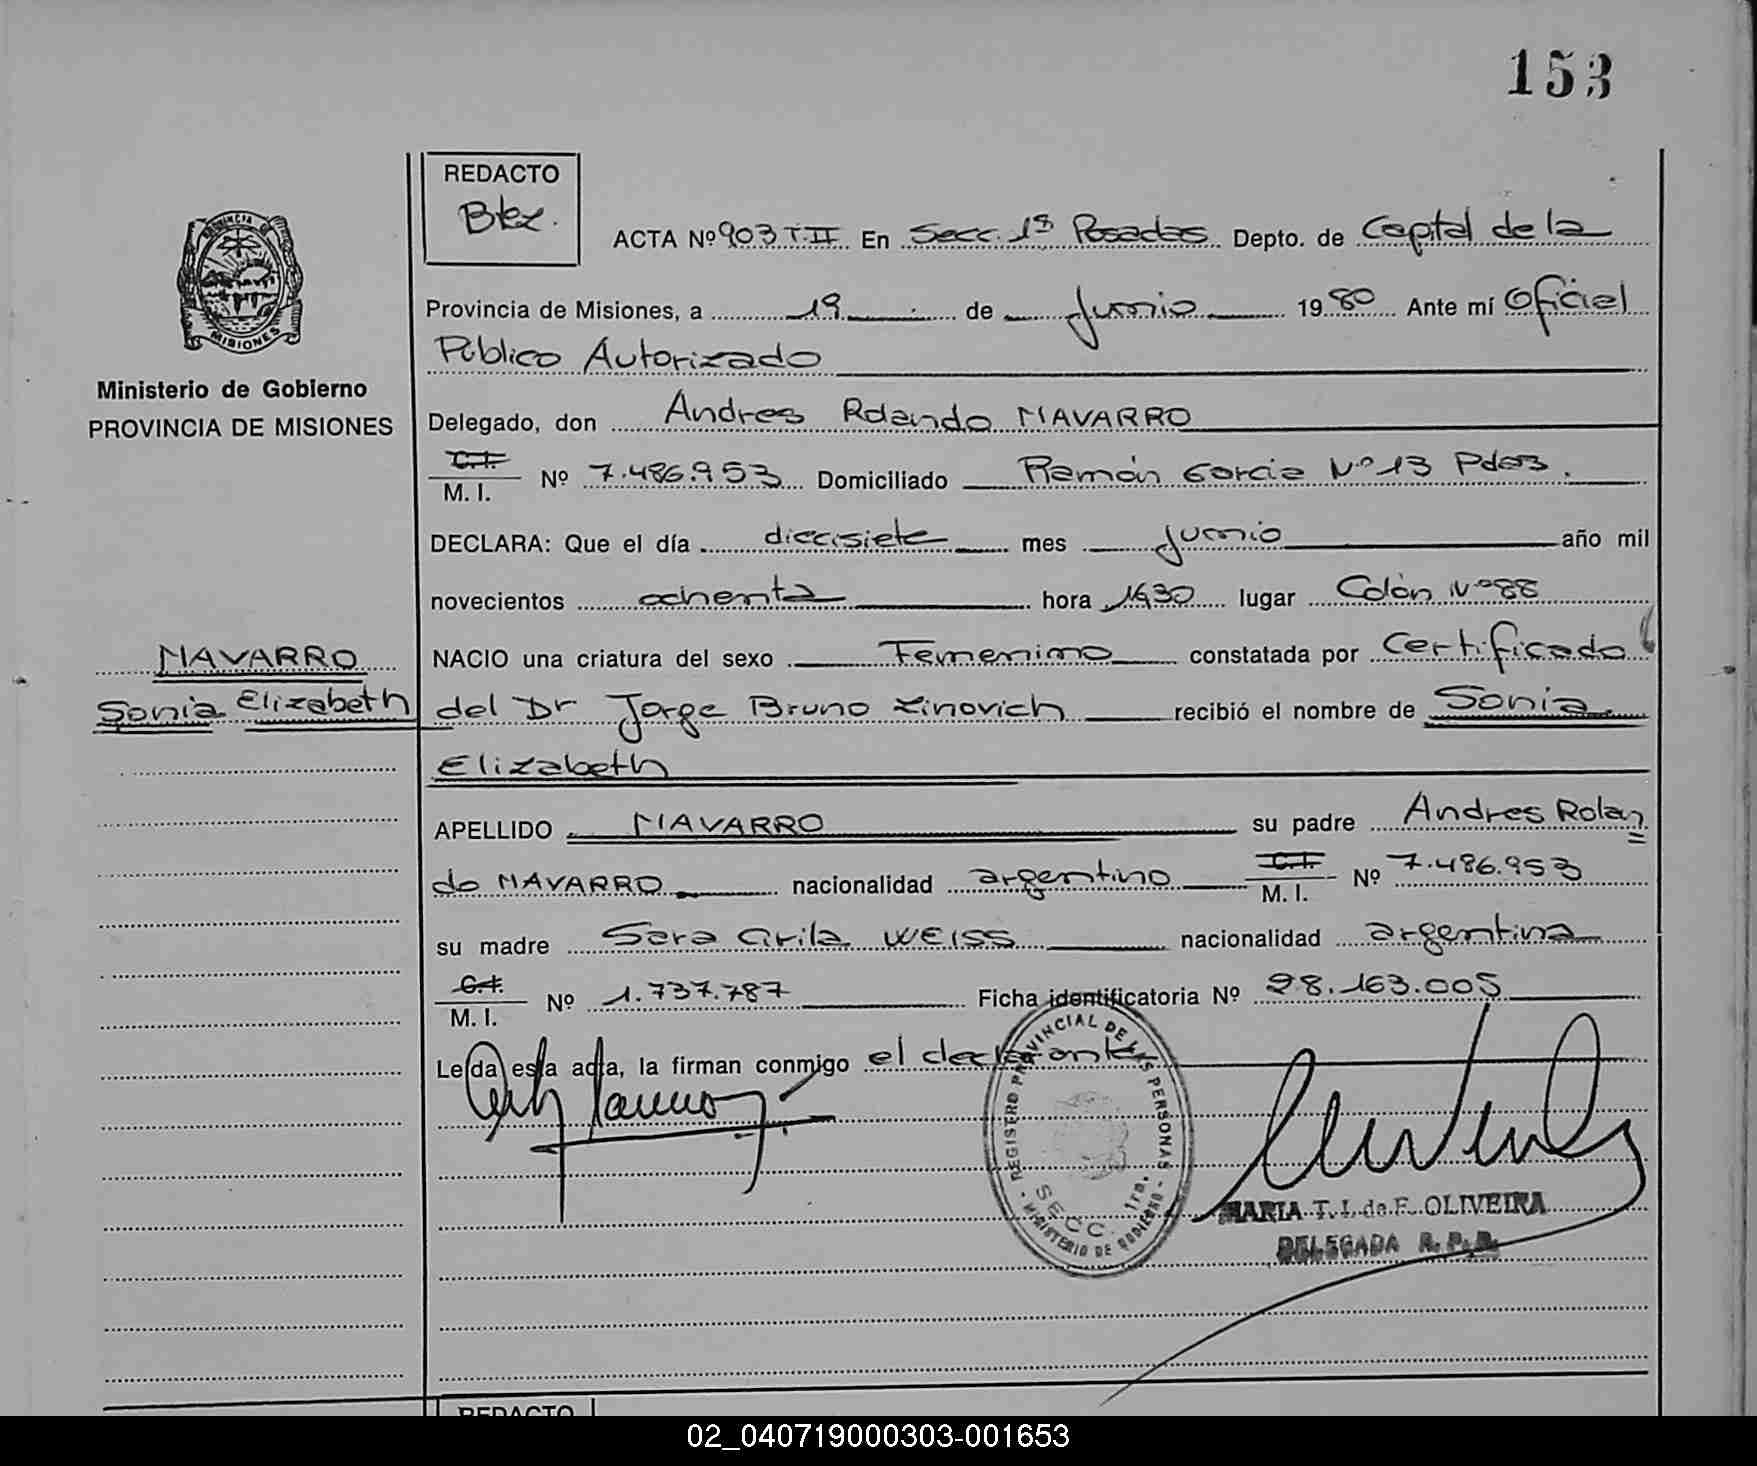 153
REDACTO
Btez.
ACTA Nº 903 T.II En Secc. 1ª Posadas Depto. de Capital de la
Provincia de Misiones, a 19 de Junio 1980 Ante mí Oficial
Público Autorizado
Ministerio de Gobierno
PROVINCIA DE MISIONES
Delegado, don Andres Rolando NAVARRO
C.I.
M. I. Nº 7.486.953 Domiciliado Ramón Garcia Nº 13 Pdas.
DECLARA: Que el día diecisiete mes Junio año mil
novecientos ochenta hora lugar Colón Nº 88
NAVARRO
Sonia Elizabeth
NACIO una criatura del sexo Femenino constatada por Certificado
del Dr Jorge Bruno Zinovich recibió el nombre de Sonia
Elizabeth
APELLIDO NAVARRO su padre Andres Rolan=
do NAVARRO nacionalidad argentino C.I. M. I. Nº 7.486.953
su madre Sara Arila WEISS nacionalidad argentina
C.I.
M. I. Nº 1.737.787 Ficha identificatoria Nº 28.163.005
Leida esta acta, la firman conmigo el declarante
REGISTRO PROVINCIAL DE LAS PERSONAS
SECC. 1ra.
MINISTERIO DE GOBIERNO
MARIA T. I. de F. OLIVEIRA
DELEGADA R. P. P.
REDACTO
02_040719000303-001653